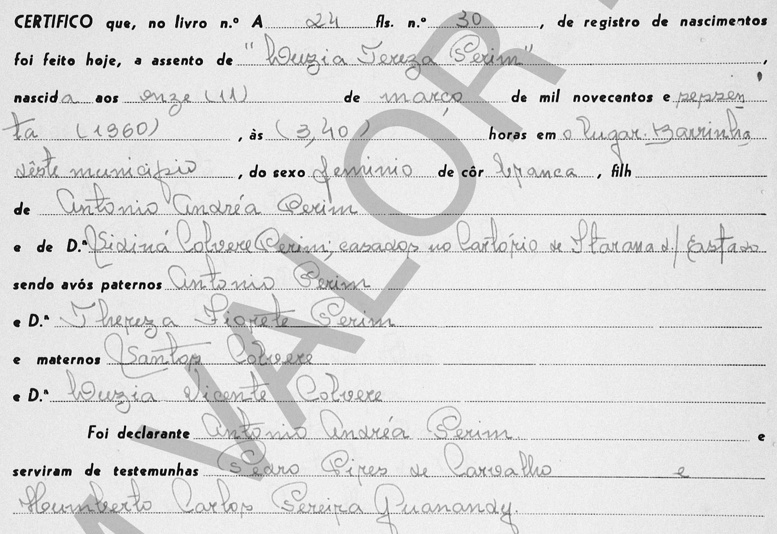 CERTIFICO que, no livro n.º A 24 fls. n.º 30, de registro de nascimentos
foi feito hoje, a assento de "Luzia Tereza Perim",
nascida aos onze (11) de março de mil novecentos e sessen
ta (1960), às (3,40) horas em o lugar Barrinha
dêste municipio, do sexo feminino de côr branca, filh
de Antonio Andréa Perim
e de D.ª Colvere Perim; casados no Cartório de Itarana d/Estado
sendo avós paternos Antonio Perim
e D.ª Thereza Fiorete Perim
e maternos Santos Colvere
e D.ª Luzia Vicente Colvere
Foi declarante Antonio Andréa Perim e
serviram de testemunhas Pedro Pires de Carvalho e
Humberto Carlos Pereira Guanandy.
VALOR